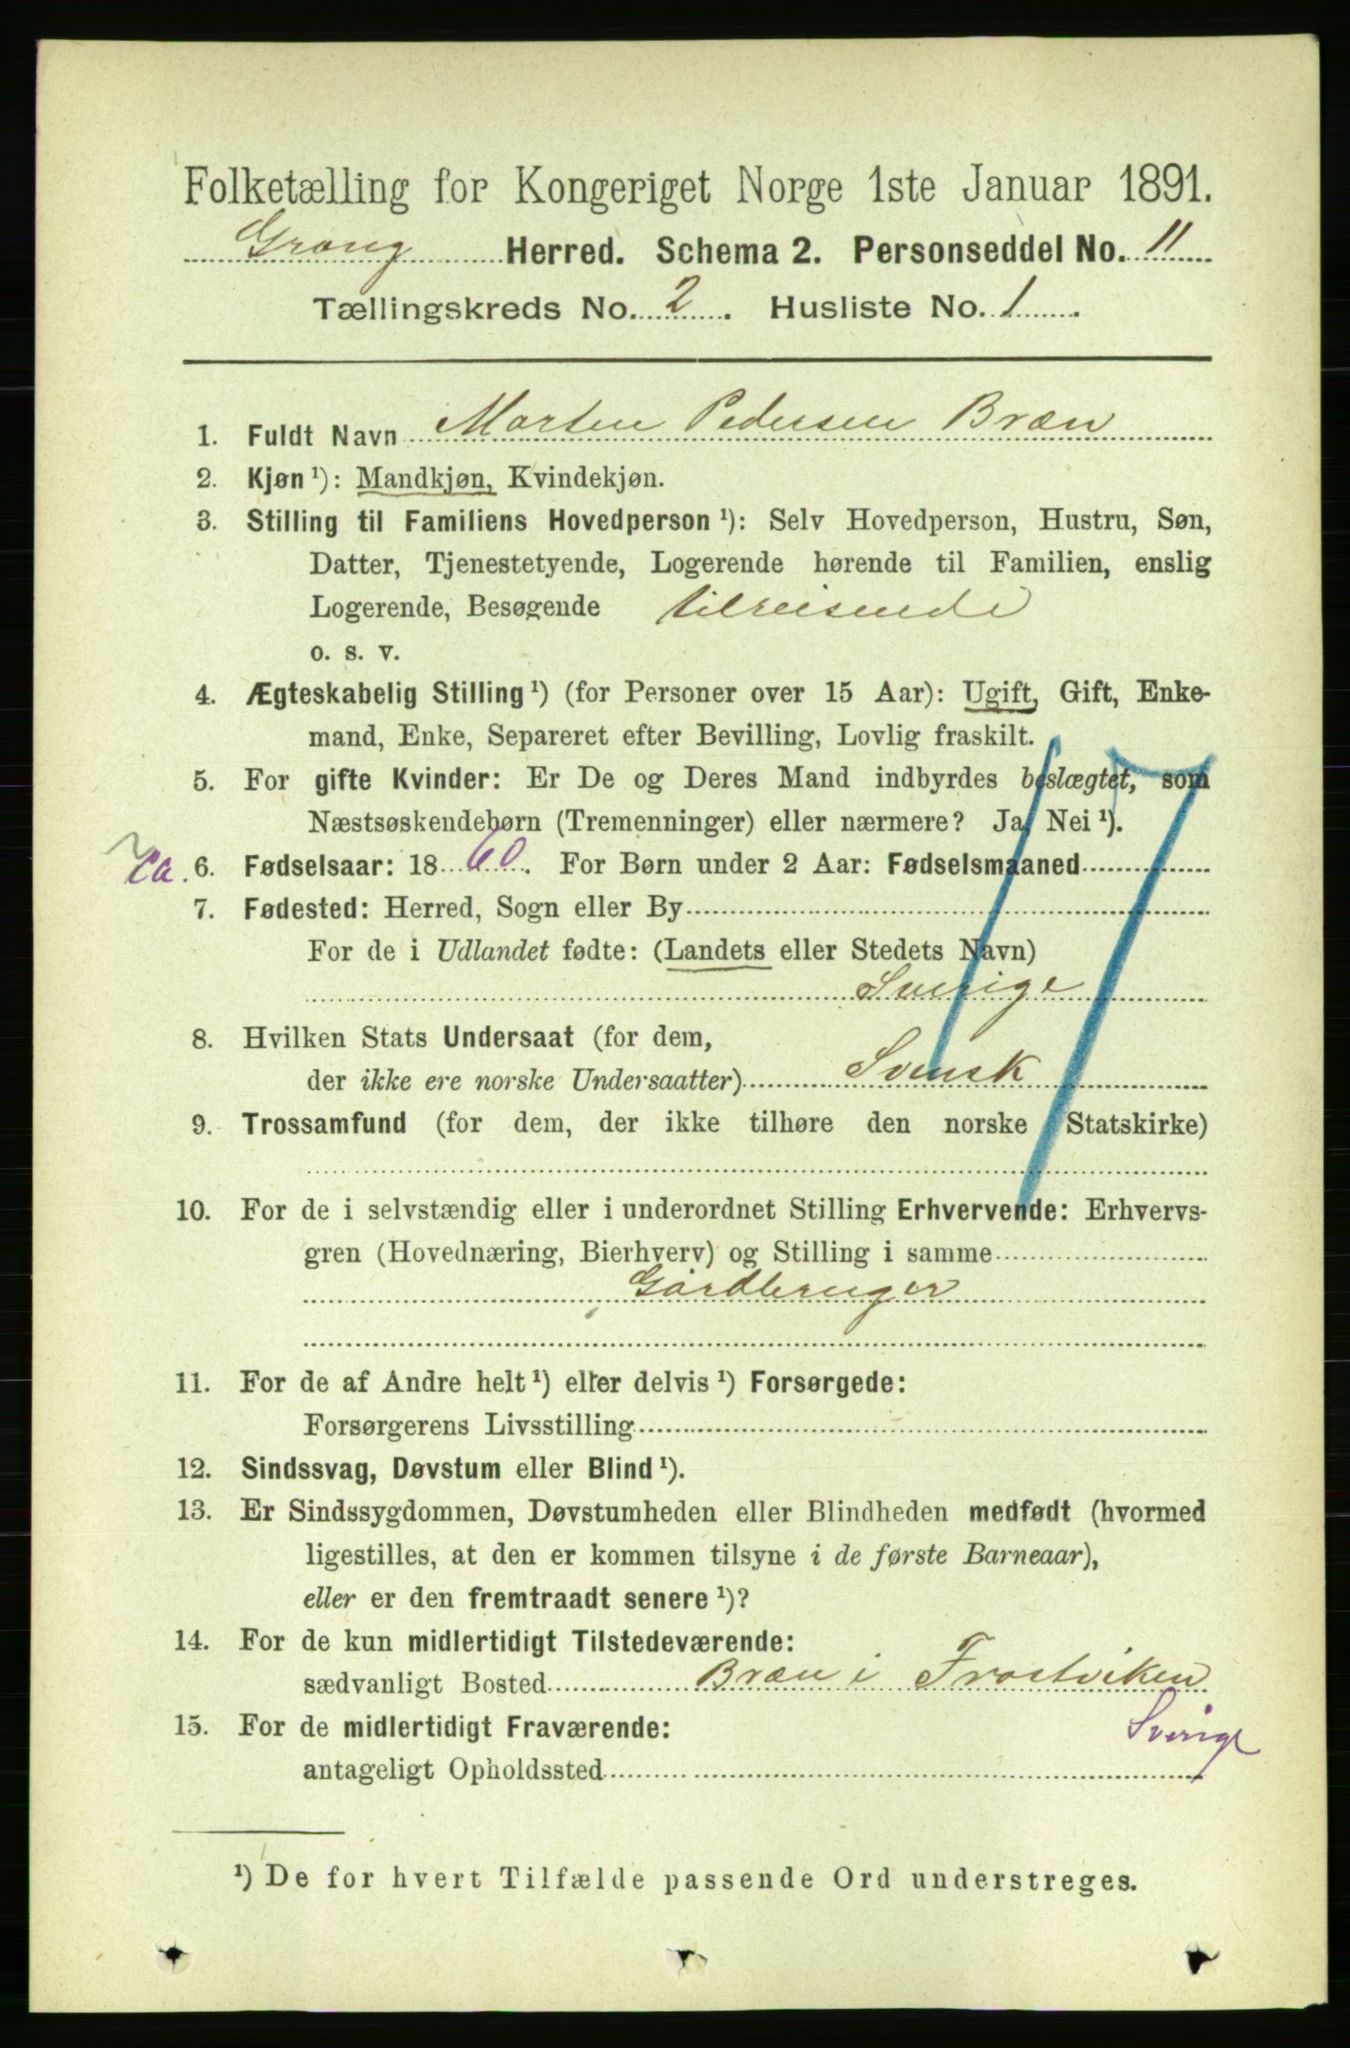 Folketælling for Kongeriget Norge 1ste Januar 1891.
Grong Herred. Schema 2. Personseddel No. 11
Tællingskreds No. 2. Husliste No. 1.
1. Fuldt Navn Morten Pedersen Bræn
2. Kjøn¹): Mandkjøn, Kvindekjøn.
3. Stilling til Familiens Hovedperson¹): Selv Hovedperson, Hustru, Søn,
Datter, Tjenestetyende, Logerende hørende til Familien, enslig
Logerende, Besøgende tilreisende
o. s. v.
4. Ægteskabelig Stilling¹) (for Personer over 15 Aar): Ugift, Gift, Enke-
mand, Enke, Separeret efter Bevilling, Lovlig fraskilt.
5. For gifte Kvinder: Er De og Deres Mand indbyrdes beslægtet, som
Næstsøskendebørn (Tremenninger) eller nærmere? Ja, Nei¹).
ca. 6. Fødselsaar: 1860. For Børn under 2 Aar: Fødselsmaaned
7. Fødested: Herred, Sogn eller By
For de i Udlandet fødte: (Landets eller Stedets Navn)
Sverige
8. Hvilken Stats Undersaat (for dem,
der ikke ere norske Undersaatter) Svensk
17
9. Trossamfund (for dem, der ikke tilhøre den norske Statskirke)
10. For de i selvstændig eller i underordnet Stilling Erhvervende: Erhvervs-
gren (Hovednæring, Bierhverv) og Stilling i samme
Gårdbruger
11. For de af Andre helt¹) eller delvis¹) Forsørgede:
Forsørgerens Livsstilling
12. Sindssvag, Døvstum eller Blind¹).
13. Er Sindssygdommen, Døvstumheden eller Blindheden medfødt (hvormed
ligestilles, at den er kommen tilsyne i de første Barneaar),
eller er den fremtraadt senere¹)?
14. For de kun midlertidigt Tilstedeværende:
sædvanligt Bosted Bræn i Frostviken
Sverige
15. For de midlertidigt Fraværende:
antageligt Opholdssted
¹) De for hvert Tilfælde passende Ord understreges.